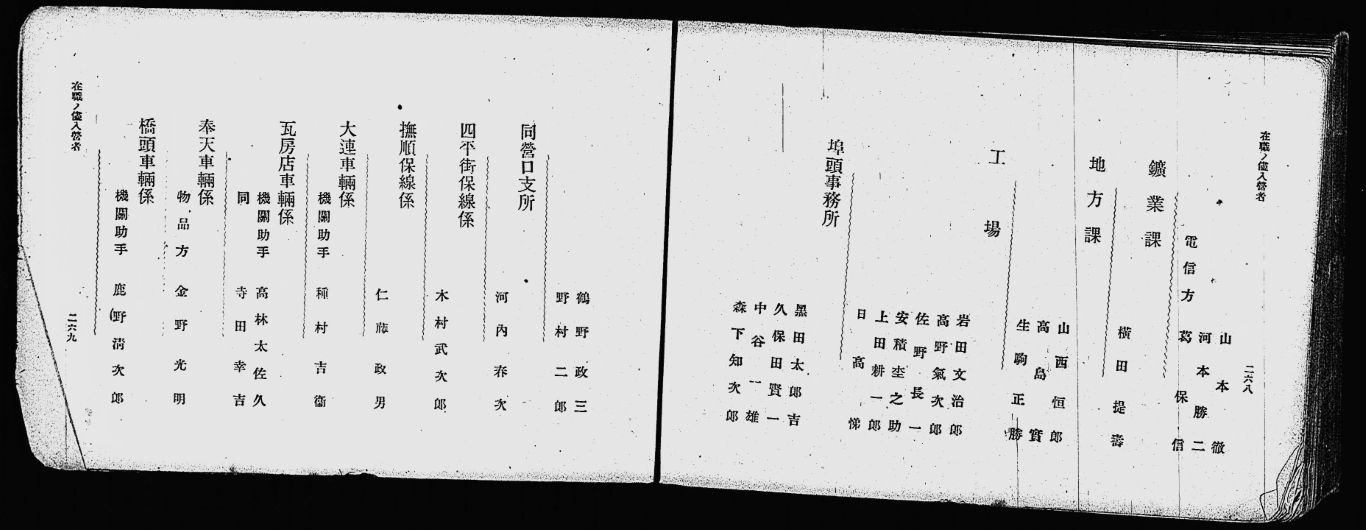 在職ノ儘入營者
二六八
山本徹
河本勝二
電信方 葛保信
鑛業課
橫田提壽
地方課
山西恒郎
高島實
生駒正勝
工場
岩田文治郎
高野氣次郎
佐野長一
安積坴之助
上田耕一郎
日高悌
埠頭事務所
黑田太郎吉
久保田賢一
中谷一雄
森下知次郎
鶴野政三
野村二郎
同營口支所
河內春次
四平街保線係
木村武次郎
撫順保線係
仁藤政男
大連車輛係
機關助手 種村吉衞
瓦房店車輛係
機關助手 高林太佐久
同 寺田幸吉
奉天車輛係
物品方 金野光明
橋頭車輛係
機關助手 鹿野淸次郎
在職ノ儘入營者
二六九